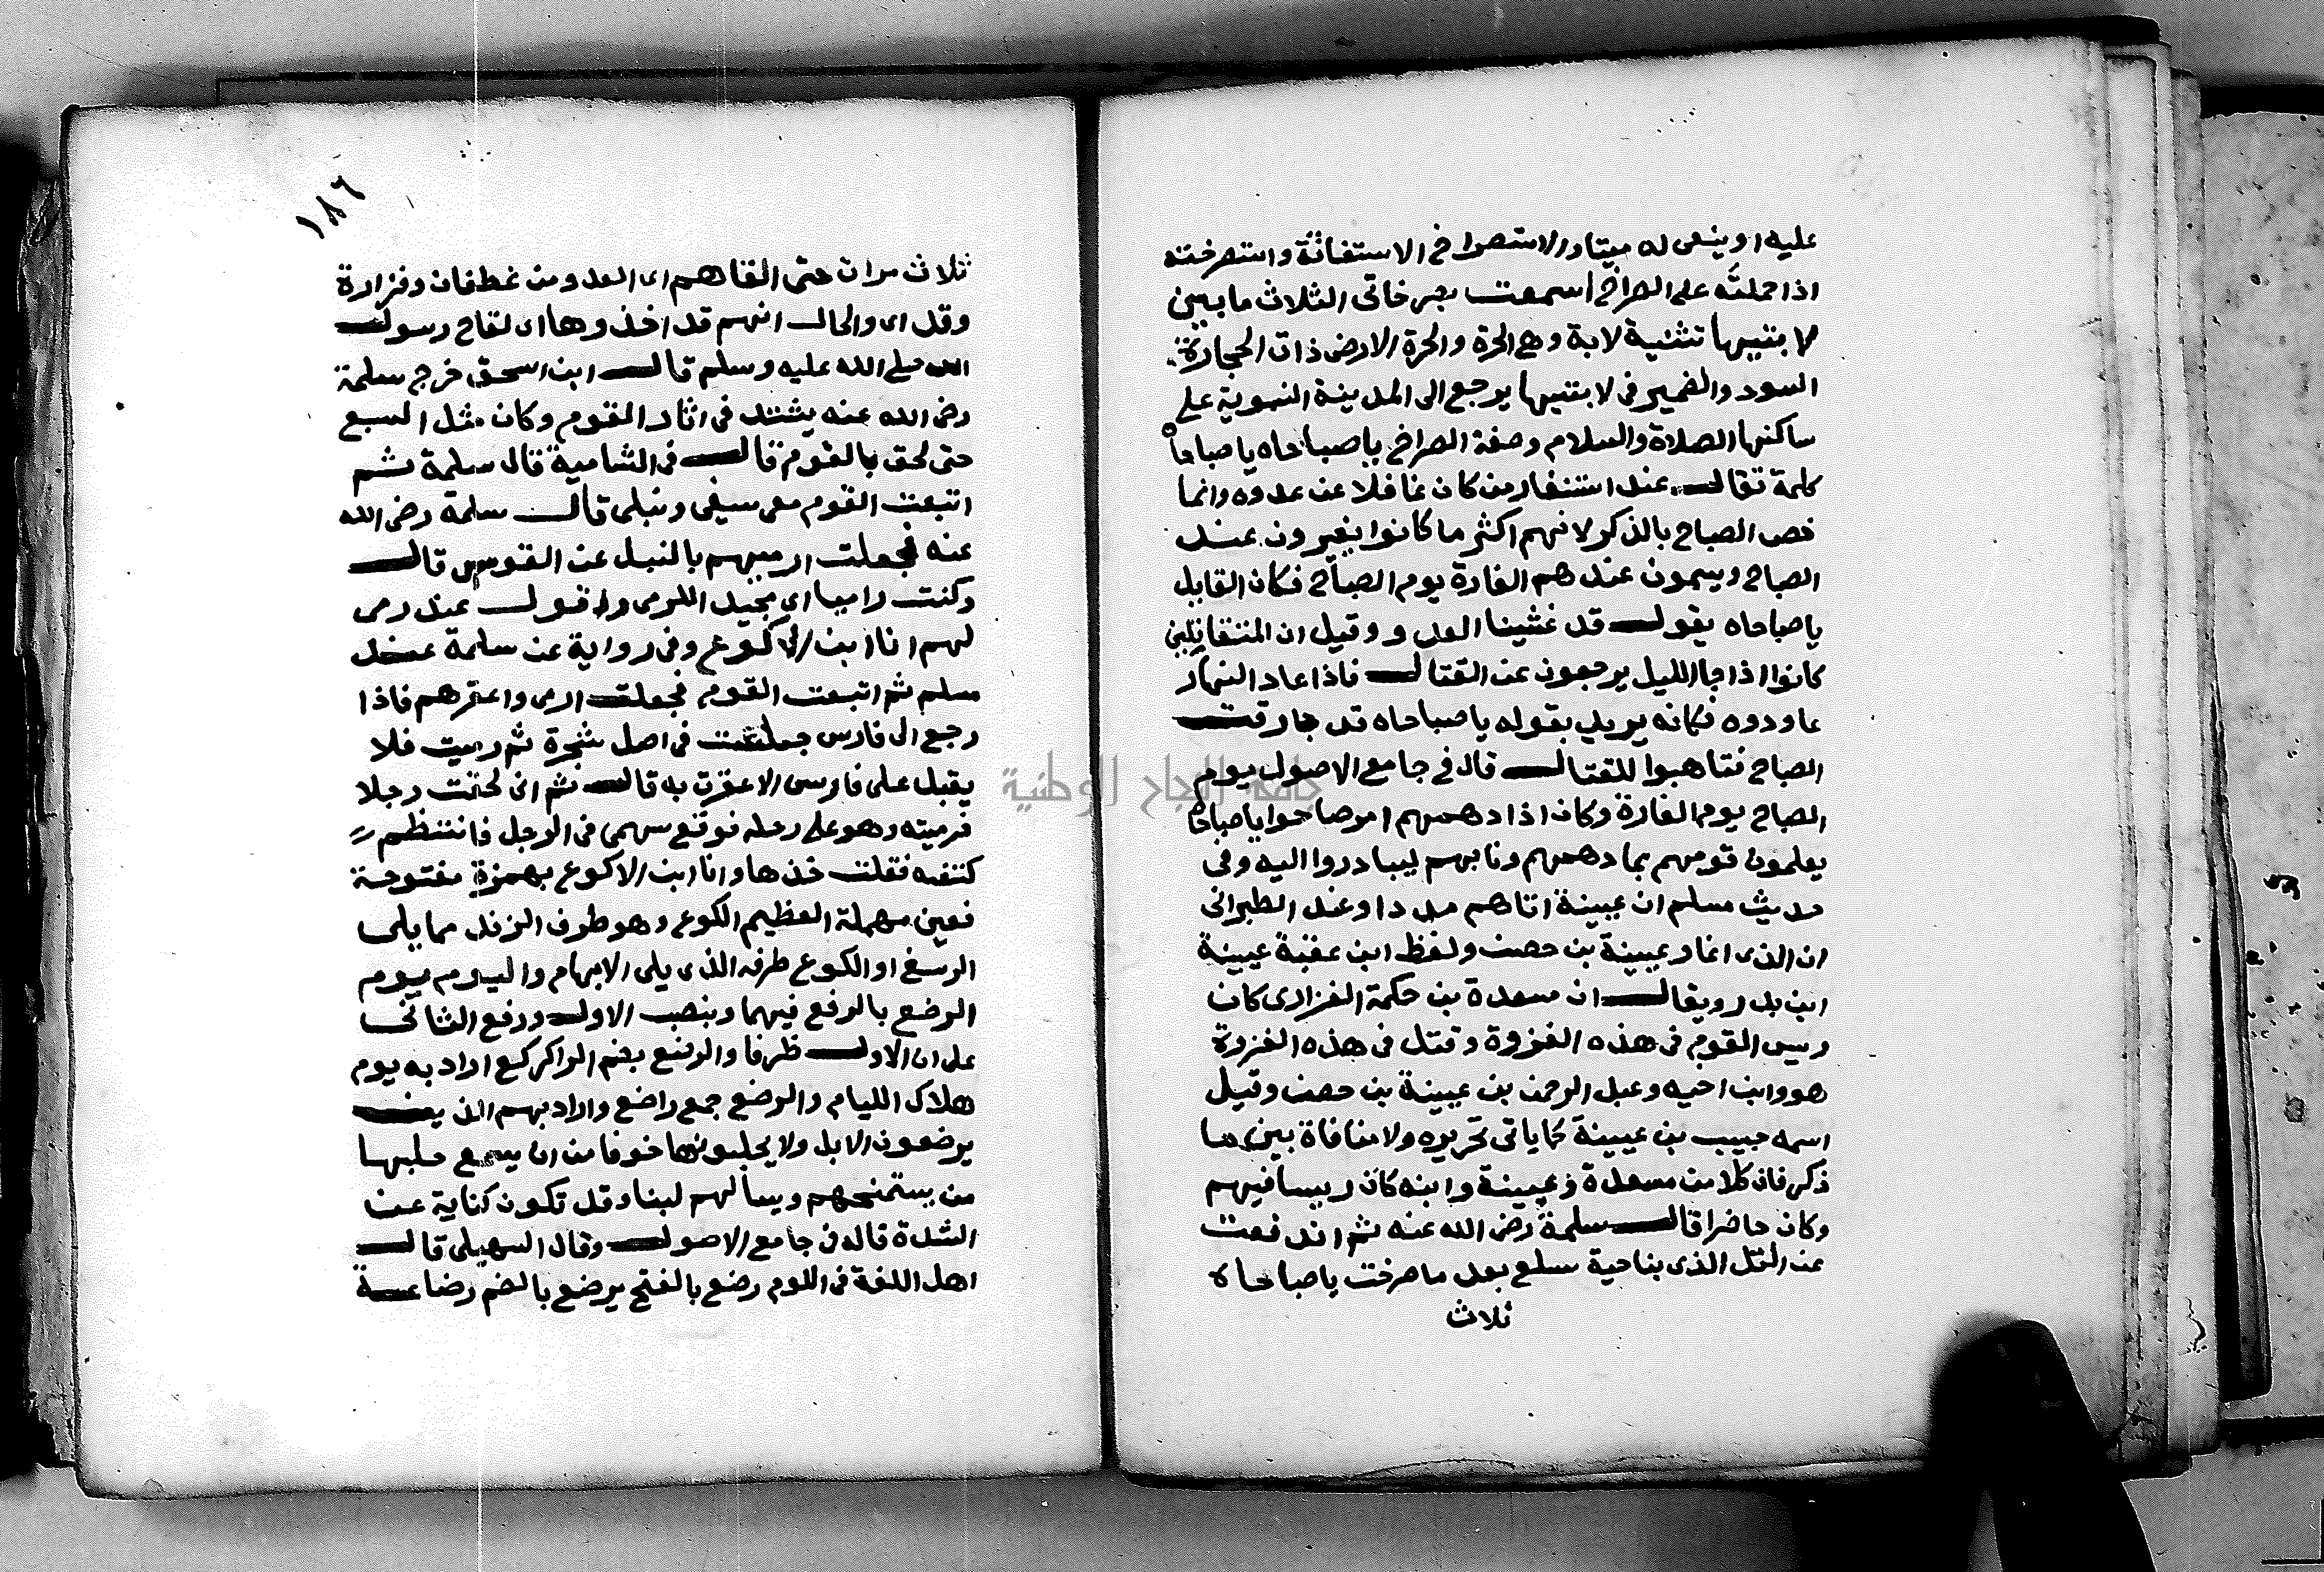 عليه او ينعى له ميتا والاستصراخ الاستغاثة واستصرخته
اذا حملته على الصراخ اسمعت بصرخاتى الثلاث ما بين
لابتيها تثنية لابة وهى الحرة والحرة الارض ذات الحجارة
السود والضمير فى لابتيها يرجع الى المدينة النبوية على
ساكنها الصلاة والسلام وصفة الصراخ يا صباحاه يا صباحاه
كلمة تقال عند استنفار من كان غافلا عن عدوه وانما
خص الصباح بالذكر لانهم اكثر ما كانوا يغيرون عند
الصباح ويسمون عندهم الغارة يوم الصباح فكان القايل
يا صباحاه يقول قد غشينا العدو وقيل ان المتقاتلين
كانوا اذا جا الليل يرجعون عن القتال فاذا عاد النهار
عاودوه فكانه يريد بقوله يا صباحاه قد جا وقت
الصباح فتاهبوا للقتال قال فى جامع الاصول يوم
الصباح يوم الغارة وكان اذا دهمهم امر صاحوا يا صباحاه
يعلمون قومهم بما دهمهم ونابهم ليبادروا اليه وفى
حديث مسلم ان عيينة اتاهم مددا وعند الطبرانى
ان الذى اغار عيينة بن حصن ولفظ ابن عقبة عيينة
ابن بدر ويقال ان مسعدة بن حكمة الفزارى كان
ريس القوم فى هذه الغزوة وقتل فى هذه الغزوة
هو وابن اخيه وعبد الرحمن بن عيينة بن حصن وقيل
اسمه حبيب بن عيينة كما ياتى تحريره ولا منافاة بين ما
ذكر فان كلا من مسعدة وعيينة وابنه كان ريسا فيهم
وكان حاضرا قال سلمة رضى الله عنه ثم اندفعت
عن التل الذى بناحية سلع بعد ما صرخت يا صباحاه
ثلاث
١٨٦
ثلاث مرات حتى القاهم اى العدو من غطفان وفزارة
وقد اى والحال انهم قد اخذوها اى لقاح رسول
الله صلى الله عليه وسلم قال ابن اسحق خرج سلمة
رضى الله عنه يشتد فى اثار القوم وكان مثل السبع
حتى لحق بالقوم قال فى الشامية قال سلمة ثم
اتبعت القوم معى سيفى ونبلى قال سلمة رضى الله
عنه فجعلت ارميهم بالنبل عن القوس قال
وكنت راميا اى مجيد الرمى واقول عند رمى
لهم انا ابن الاكوع وفى رواية عن سلمة عند
مسلم ثم اتبعت القوم فجعلت ارمى واعقرهم فاذا
رجع الى فارس جلست فى اصل شجرة ثم رميت فلا
يقبل على فارس الا عقرت به قال ثم انى لحقت رجلا
فرميته وهو على رحله فوقع سهمى فى الرجل فانتظم
كتفه فقلت خذها وانا ابن الاكوع بهمزة مفتوحة
فعين مهملة العظيم الكوع وهو طرف الزند مما يلى
الرسغ او الكوع طرفه الذى يلى الابهام واليوم يوم
الرضع بالرفع فيهما وبنصب الاول ورفع الثانى
على ان الاول ظرفا والرضع بضم الرا كركع اراد به يوم
هلاك الليام والرضع جمع راضع واراد بهم الذين
يرضعون الابل ولا يحلبونها خوفا من ان يسمع حلبها
من يستمنحهم ويسالهم لبنا وقد تكون كناية عن
الشدة قاله فى جامع الاصول وقال السهيلى قال
اهل اللغة فى اللوم رضع بالفتح يرضع بالضم رضاعة
جامعة النجاح الوطنية